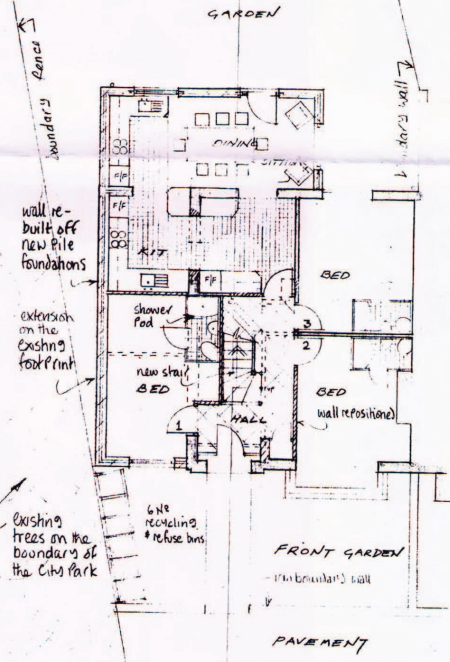 GARDEN
boundary fence
DINING
SITTING
F/F
F/F
wall re-
built off
new pile
foundations
KIT
F/F
BED
extension
on the
existing
footprint
shower
pod
3
2
new stair
BED
BED
wall repositioned
HALL
1
existing
trees on the
boundary of
the City Park
6 No
recycling
& refuse bins
FRONT GARDEN
boundary wall
PAVEMENT